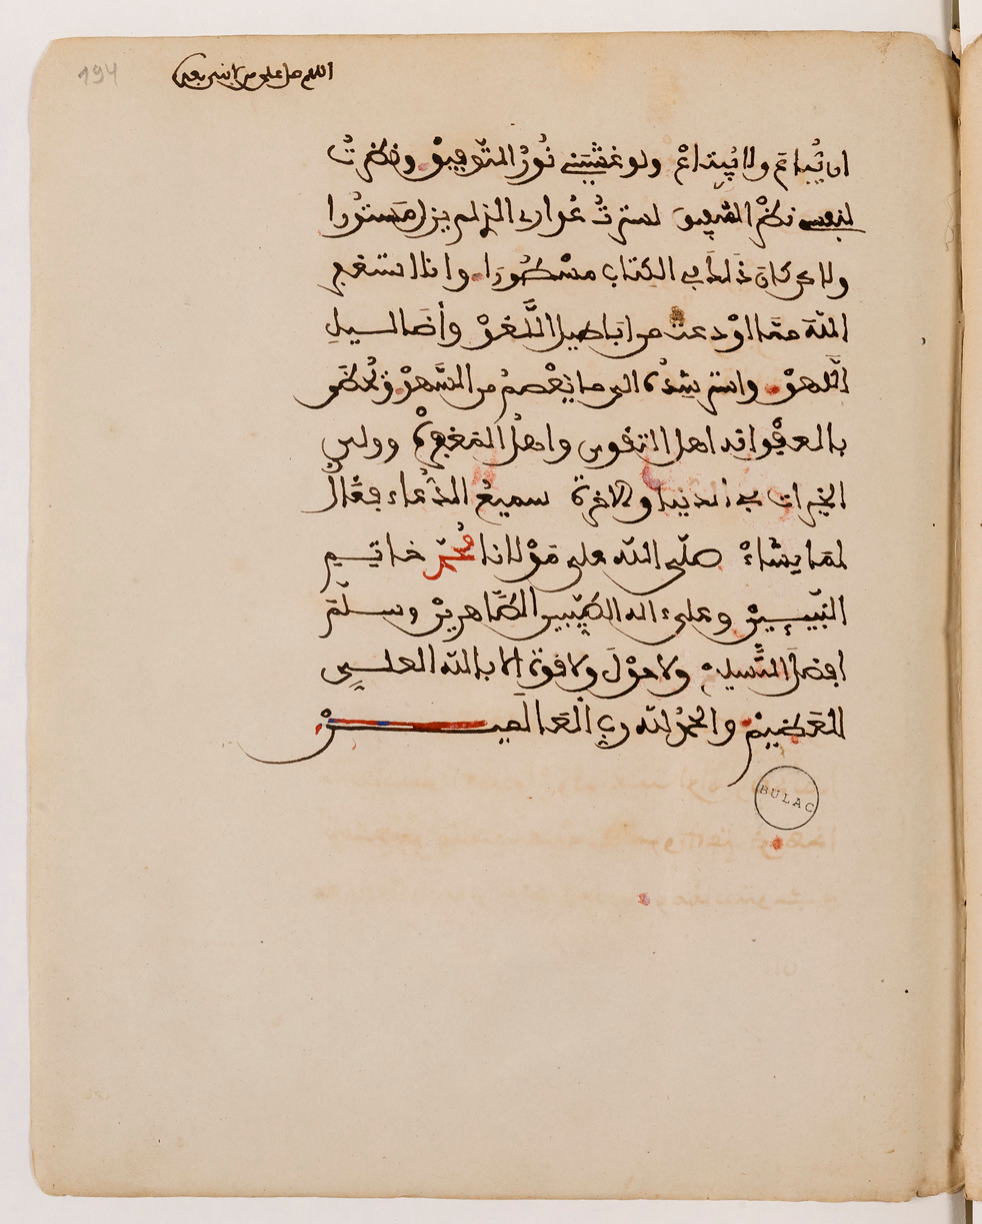 194
اللهم صل على من لا نبي بعده
ان يُباعَ ولا يُبتاعُ ولو غشيَتني نُورُ التّوفيقْ ونظرتُ
لنفسي نظرَ الشفيق لسترتُ عُواري الذي لم يزل مستورا
ولاكن كان ذَلك في الكتاب مسطُورَا وانا استغفر
اللهَ ممّا اوْدعت من اباطيل اللّغوْ وأضَاليل
اللّهوْ واسترشدُه الى ما يَعْصم من السّهوْ ويُحظى
بالعفو انه اهل التقوى واهلُ المَغفرةْ وولي
الخيرات في الدنيا والاخرة سميعُ الدُّعاء فعّالٌ
لمَا يشاءْ صلّى اللّه على مَوْلانا محمّد خاتِيم
النّبيِيينْ وعلىءاله الطيّبين الطّاهرينْ وسلّمَ
افضلَ التّسليم ولا حوْلَ ولا قوةَ إلا باللّه العلي
العَظيمْ والحمدُ للّه ربِّ العَالَمينْ
BULAC